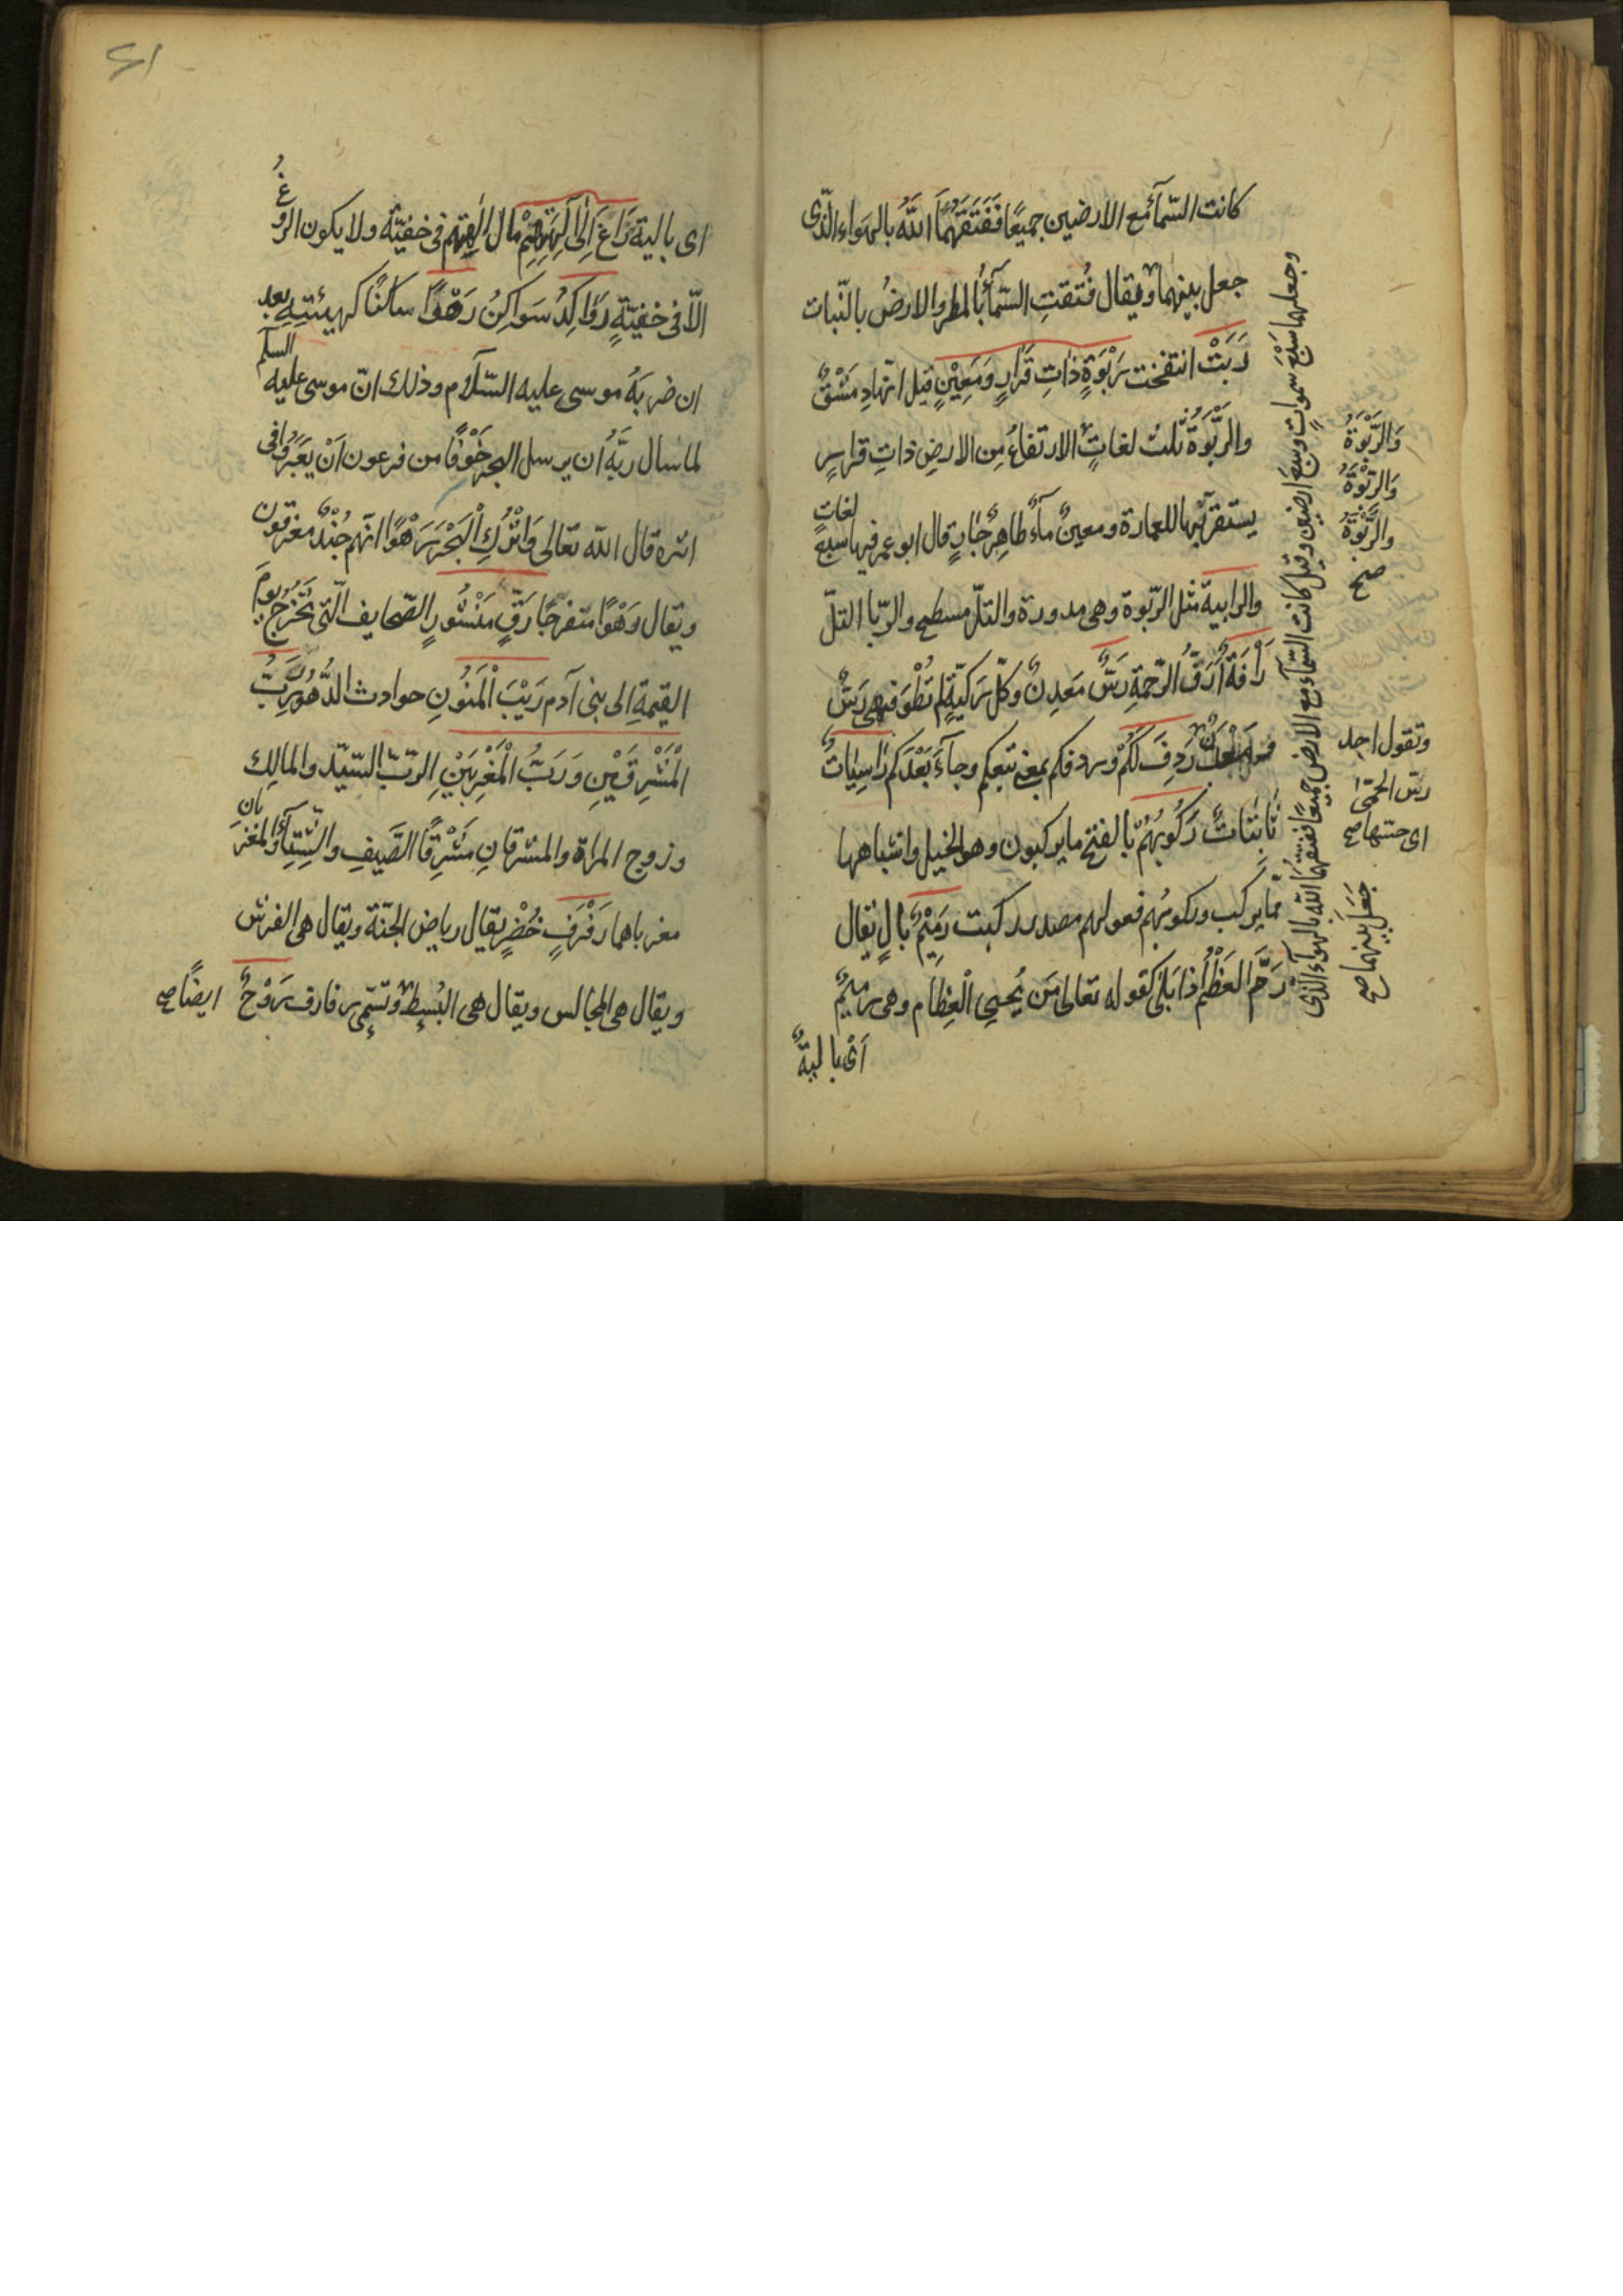 كانت السّمآء مع الارضين جميعًا فَفَتَقَهُمَا اللّٰهُ بالهواء الذّى
جعل بينهما ويقال فُتقتِ السّمآءُ بالمطر والارضُ بالنّبات
رَبَتْ انتفخت رَبْوَةٍ ذاتِ قَرَارٍ وَمَعِيْنٍ قيل انّها دِمَشْقُ
والرَّبْوَة ثلث لغاتٍ الارتفاعُ مِن الارضِ ذاتِ قرارٍ
يستقرّ بها للعمارة ومعينٌ مآءٌ ظاهِرٌ جارٍ قال ابو عمر فيها سبعُ لغاتٍ
والرابية مثل الرّبوة وهى مدورة والتلّ مسطح والرّبا التلّ
رَأْفَةٌ أَرَقُّ الرّحمةِ رَسٌّ مَعدِنٌ وكلّ رَكيّةٍ لم تُطْوَ فهى رَسٌّ
رَدِفَ لَكُمْ وردفكم بمعنى تبعكم وجآءَ بَعْدَكم رَاسِيَاتٌ
ثابتاتٌ رَكُوبُهُمْ بالفتح ما يركبون وهو الخيل واشباهها
ممّا يركب وركوبُهم فعولهم مصدر ركبت رَمِيْمٌ بالٍ يقال
رَمَّ العَظْمُ اذا بَلِىَ كقوله تعالى مَن يُحيِى الْعِظام وهى رميمٌ
اَىْ باليةٌ
وجعلهما سَبْعَ سَمواتٍ وسبعَ ارضين وقيل كانت السّمآء مع الارض جميعًا ففتقهُما اللّٰه بالهوآء الّذى
جَعَلَ بَيْنهما صح
وَالرَّبْوَةُ
وَالرِّبْوَةُ
والرُّبْوَةُ
صح
وتقول اجد
رسّ الحمّىٰ
اى حسّها صح
اى بالية رَاغَ اِلىٰ آلِهَتِهِمْ مال اِلٰى آلهتهم فى خفيّةٍ ولا يكون الروغُ
الّا فى خفيّةٍ رَوَاكِدُ سَوَاكِنُ رَهْوًا ساكنًا كهيئتِهِ بعد
ان ضربَهُ موسى عليه السّلام وذلك انّ موسى عليه السلم
لما سال ربَّهُ ان يرسل البحر خَوْفًا من فرعون اَنْ يَعْبُرُوا فى
اثره قال اللّٰه تعالى وَاتْرُكِ الْبَحْرَ رَهْوًا انّهم جُنْدٌ مغرقون
ويقال رَهْوًا منفرجًا رَقٍّ مَنْشُورٍ الصّحايف الّتى تَخْرُجُ يومَ
القيمةِ الى بنى آدم رَيْبَ الْمَنُونِ حوادث الدُّهُورِ رَبُّ
الْمَشْرِقَيْنِ وَرَبُّ الْمَغْرِبَيْنِ الربّ السّيّد والمالِك
وزوج المراة والمشرقانِ مَشْرِقَا الصَّيفِ والشّتآءِ والمغربان
مغرباهما رَفْرَفٍ خُضْرٍ يقال رياض الجنّة ويقال هى الفرش
ويقال هى المجالس ويقال هى البُسُطُ وتسمّى رفارف رَوْحٌ
ايضًا صح